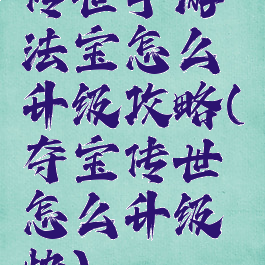 传世手游
法宝怎么
升级攻略(
夺宝传世
怎么升级